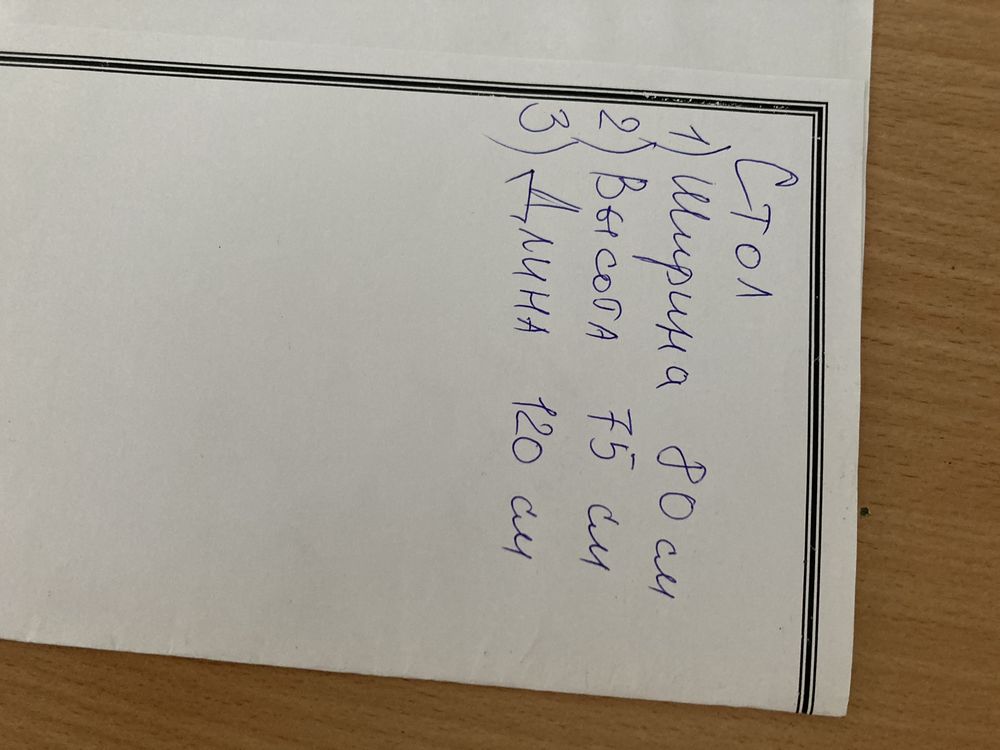 Стол
1) Ширина 80 см
2) Высота 75 см
3) Длина 120 см